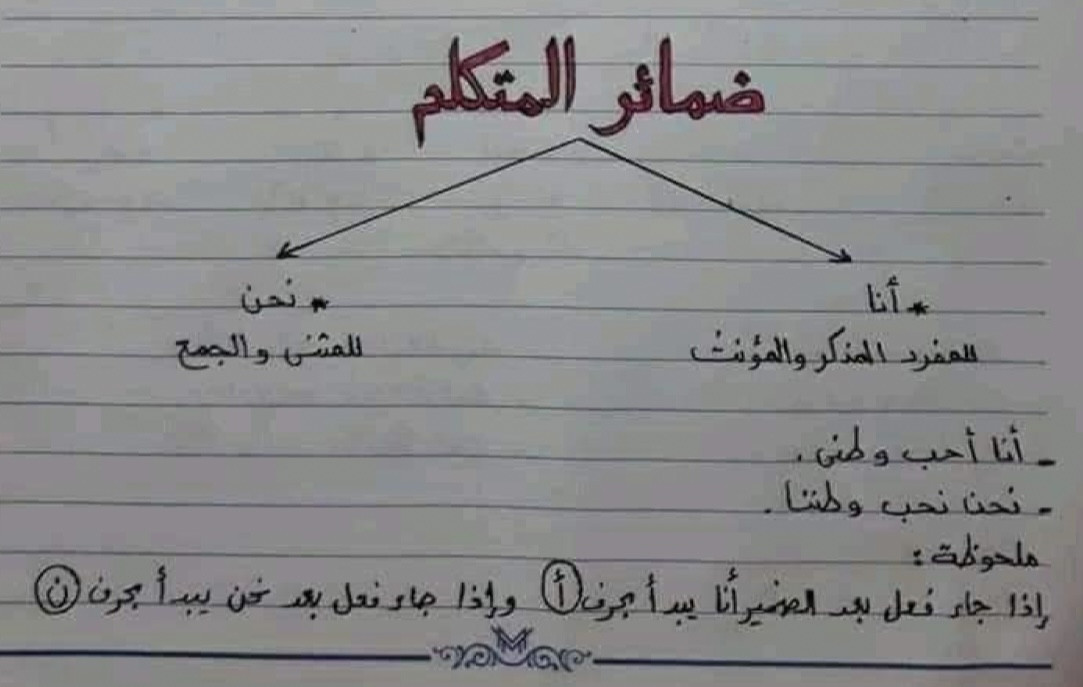 ضمائر المتكلم
* أنا
للمفرد المذكر والمؤنث
* نحن
للمثنى والجمع
- أنا أحب وطنى .
- نحن نحب وطننا .
ملحوظة :
إذا جاء فعل بعد الضمير أنا يبدأ بحرف أ وإذا جاء فعل بعد نحن يبدأ بحرف ن